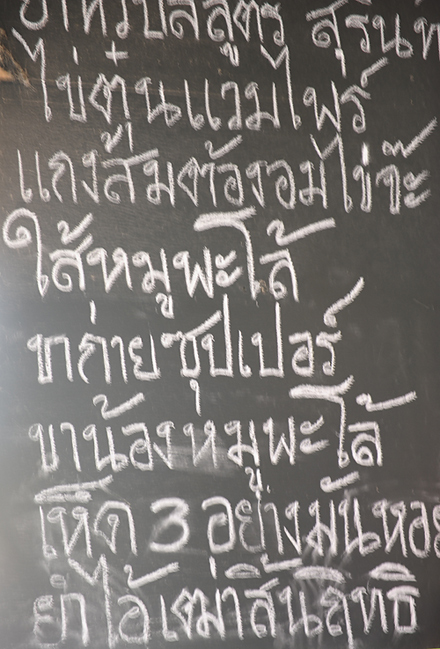 สูตร สุรินท
ไข่ตุ๋นแวมไพร์
แกงส้มต้องอมไข่จ๊ะ
ใส้หมูพะโล้
ขาก่ายซุปเปอร์
ขาน้องหมูพะโล้
เห็ด 3 อย่างมั้นหอย
ยำไอ้เฒ่าสิ้นฤทธิ